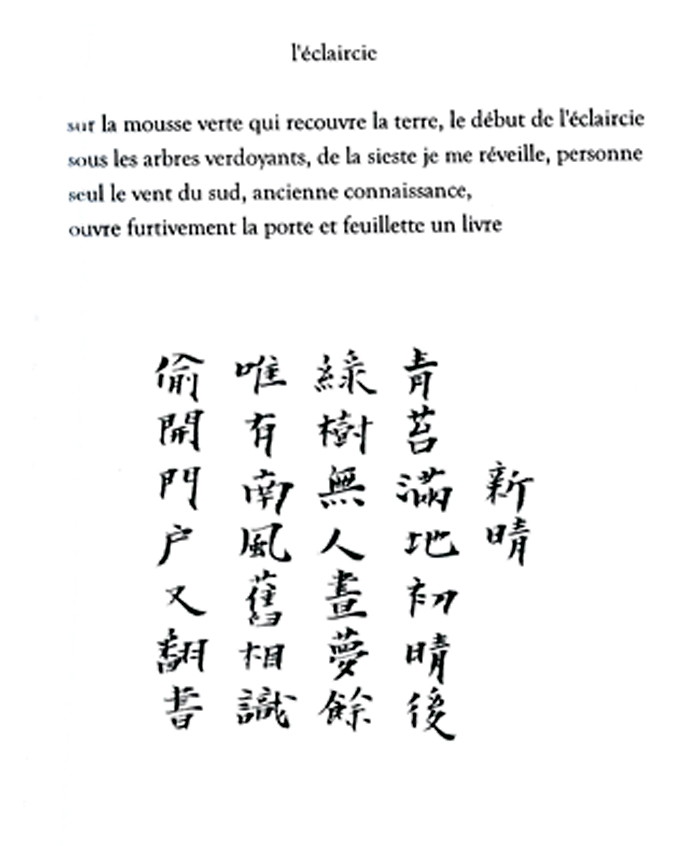 l'éclaircie
sur la mousse verte qui recouvre la terre, le début de l'éclaircie
sous les arbres verdoyants, de la sieste je me réveille, personne
seul le vent du sud, ancienne connaissance,
ouvre furtivement la porte et feuillette un livre
新晴
青苔滿地初晴後
綠樹無人晝夢餘
唯有南風舊相識
偷開門户又翻書